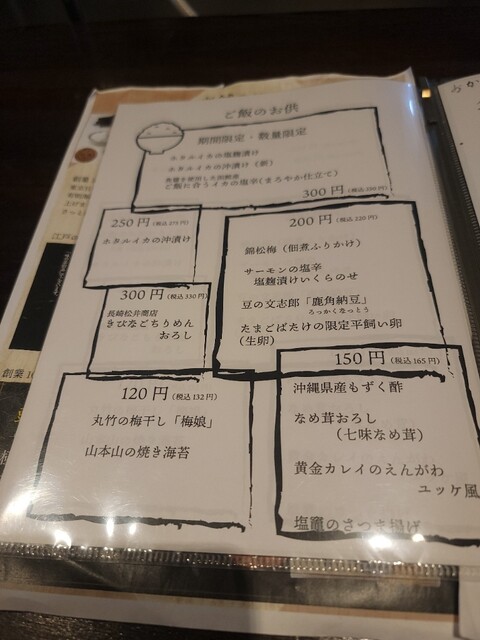 ご飯のお供
期間限定・数量限定
ホタルイカの塩麹漬け
ホタルイカの沖漬け（新）
ご飯に合うイカの塩辛(まろやか仕立て)
300円
250円（税込275円）
ホタルイカの沖漬け
200円（税込220円）
錦松梅（佃煮ふりかけ）
サーモンの塩辛
塩麹漬けいくらのせ
豆の文志郎「鹿角納豆」
ろっかくなっとう
たまごばたけの限定平飼い卵
（生卵）
300円（税込330円）
長崎松井商店
きびなごちりめん
おろし
120円（税込132円）
丸竹の梅干し「梅娘」
山本山の焼き海苔
150円（税込165円）
沖縄県産もずく酢
なめ茸おろし
（七味なめ茸）
黄金カレイのえんがわ
ユッケ風
塩竈のさつま揚げ
創業
江戸
おか